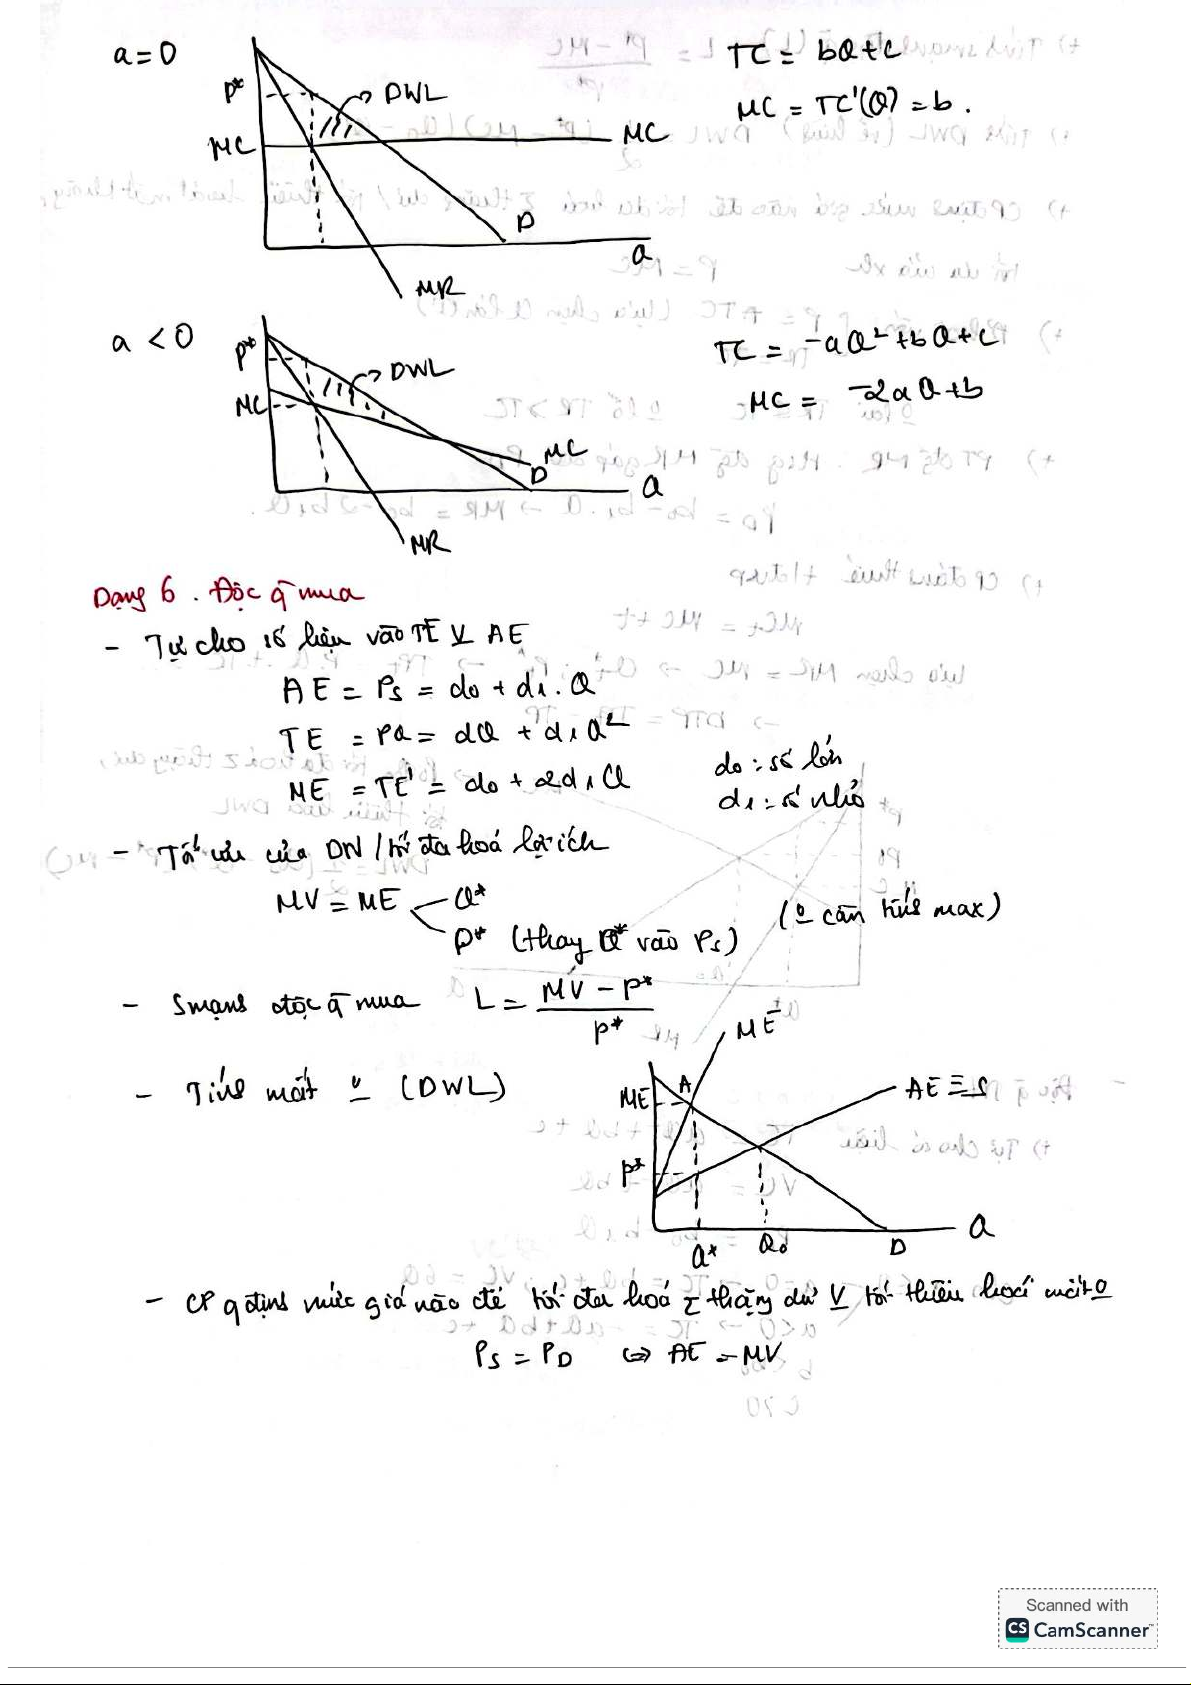 a = 0
TC = bQ + c
P*
DWL
MC = TC'(Q) = b.
MC
MC
D
Q
MR
a < 0
TC = -aQ² + bQ + c
P*
DWL
MC = -2aQ + b
MC
MC
D
Q
MR
Dạng 6. Độc q̄ mua
- Tự cho số liệu vào TE V AE
AE = Ps = do + d1.Q
TE = PQ = dQ + d1Q²
ME = TE' = do + 2d1Q
do: số lớn
d1: số nhỏ
- Tối ưu của DN / tối đa hoá lợi ích
MV = ME
Q*
P* (thay Q* vào Ps)
(o cần tính max)
- Smạnh độc q̄ mua L = (MV - P*)/P*
ME
- Tính mất o (DWL)
ME
A
AE ≡ S
P*
Q*
Qo
D
Q
- CP qđịnh mức giá nào để tối đa hoá Σ thặng dư V tối thiểu hoá mất o
Ps = PD ⇔ AE = MV
Scanned with
CS CamScanner